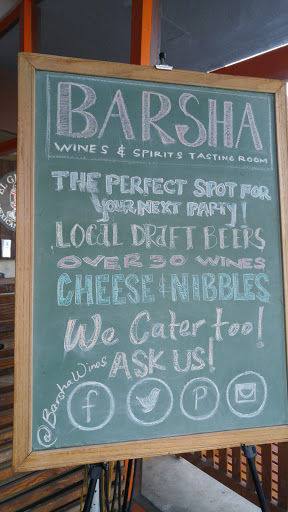 BARSHA
WINES & SPIRITS TASTING ROOM
THE PERFECT SPOT FOR
YOUR NEXT PARTY!
LOCAL DRAFT BEERS
OVER 30 WINES
CHEESE & NIBBLES
We Cater too!
ASK US!
@BarshaWines
f
P